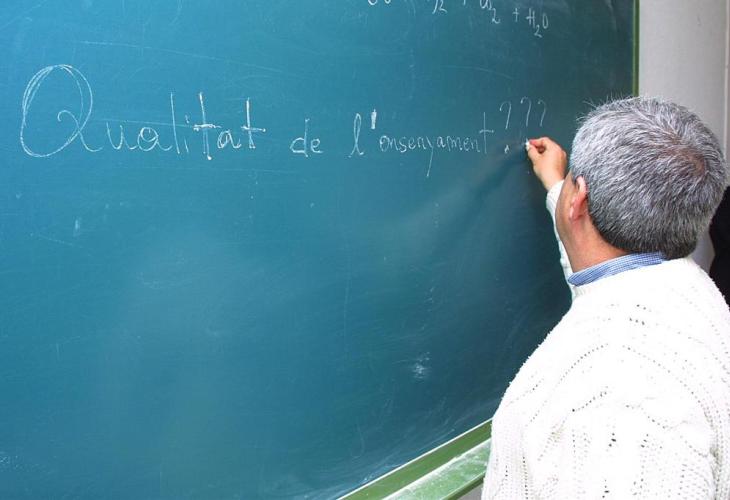 + H₂O
Qualitat de l'ensenyament ???